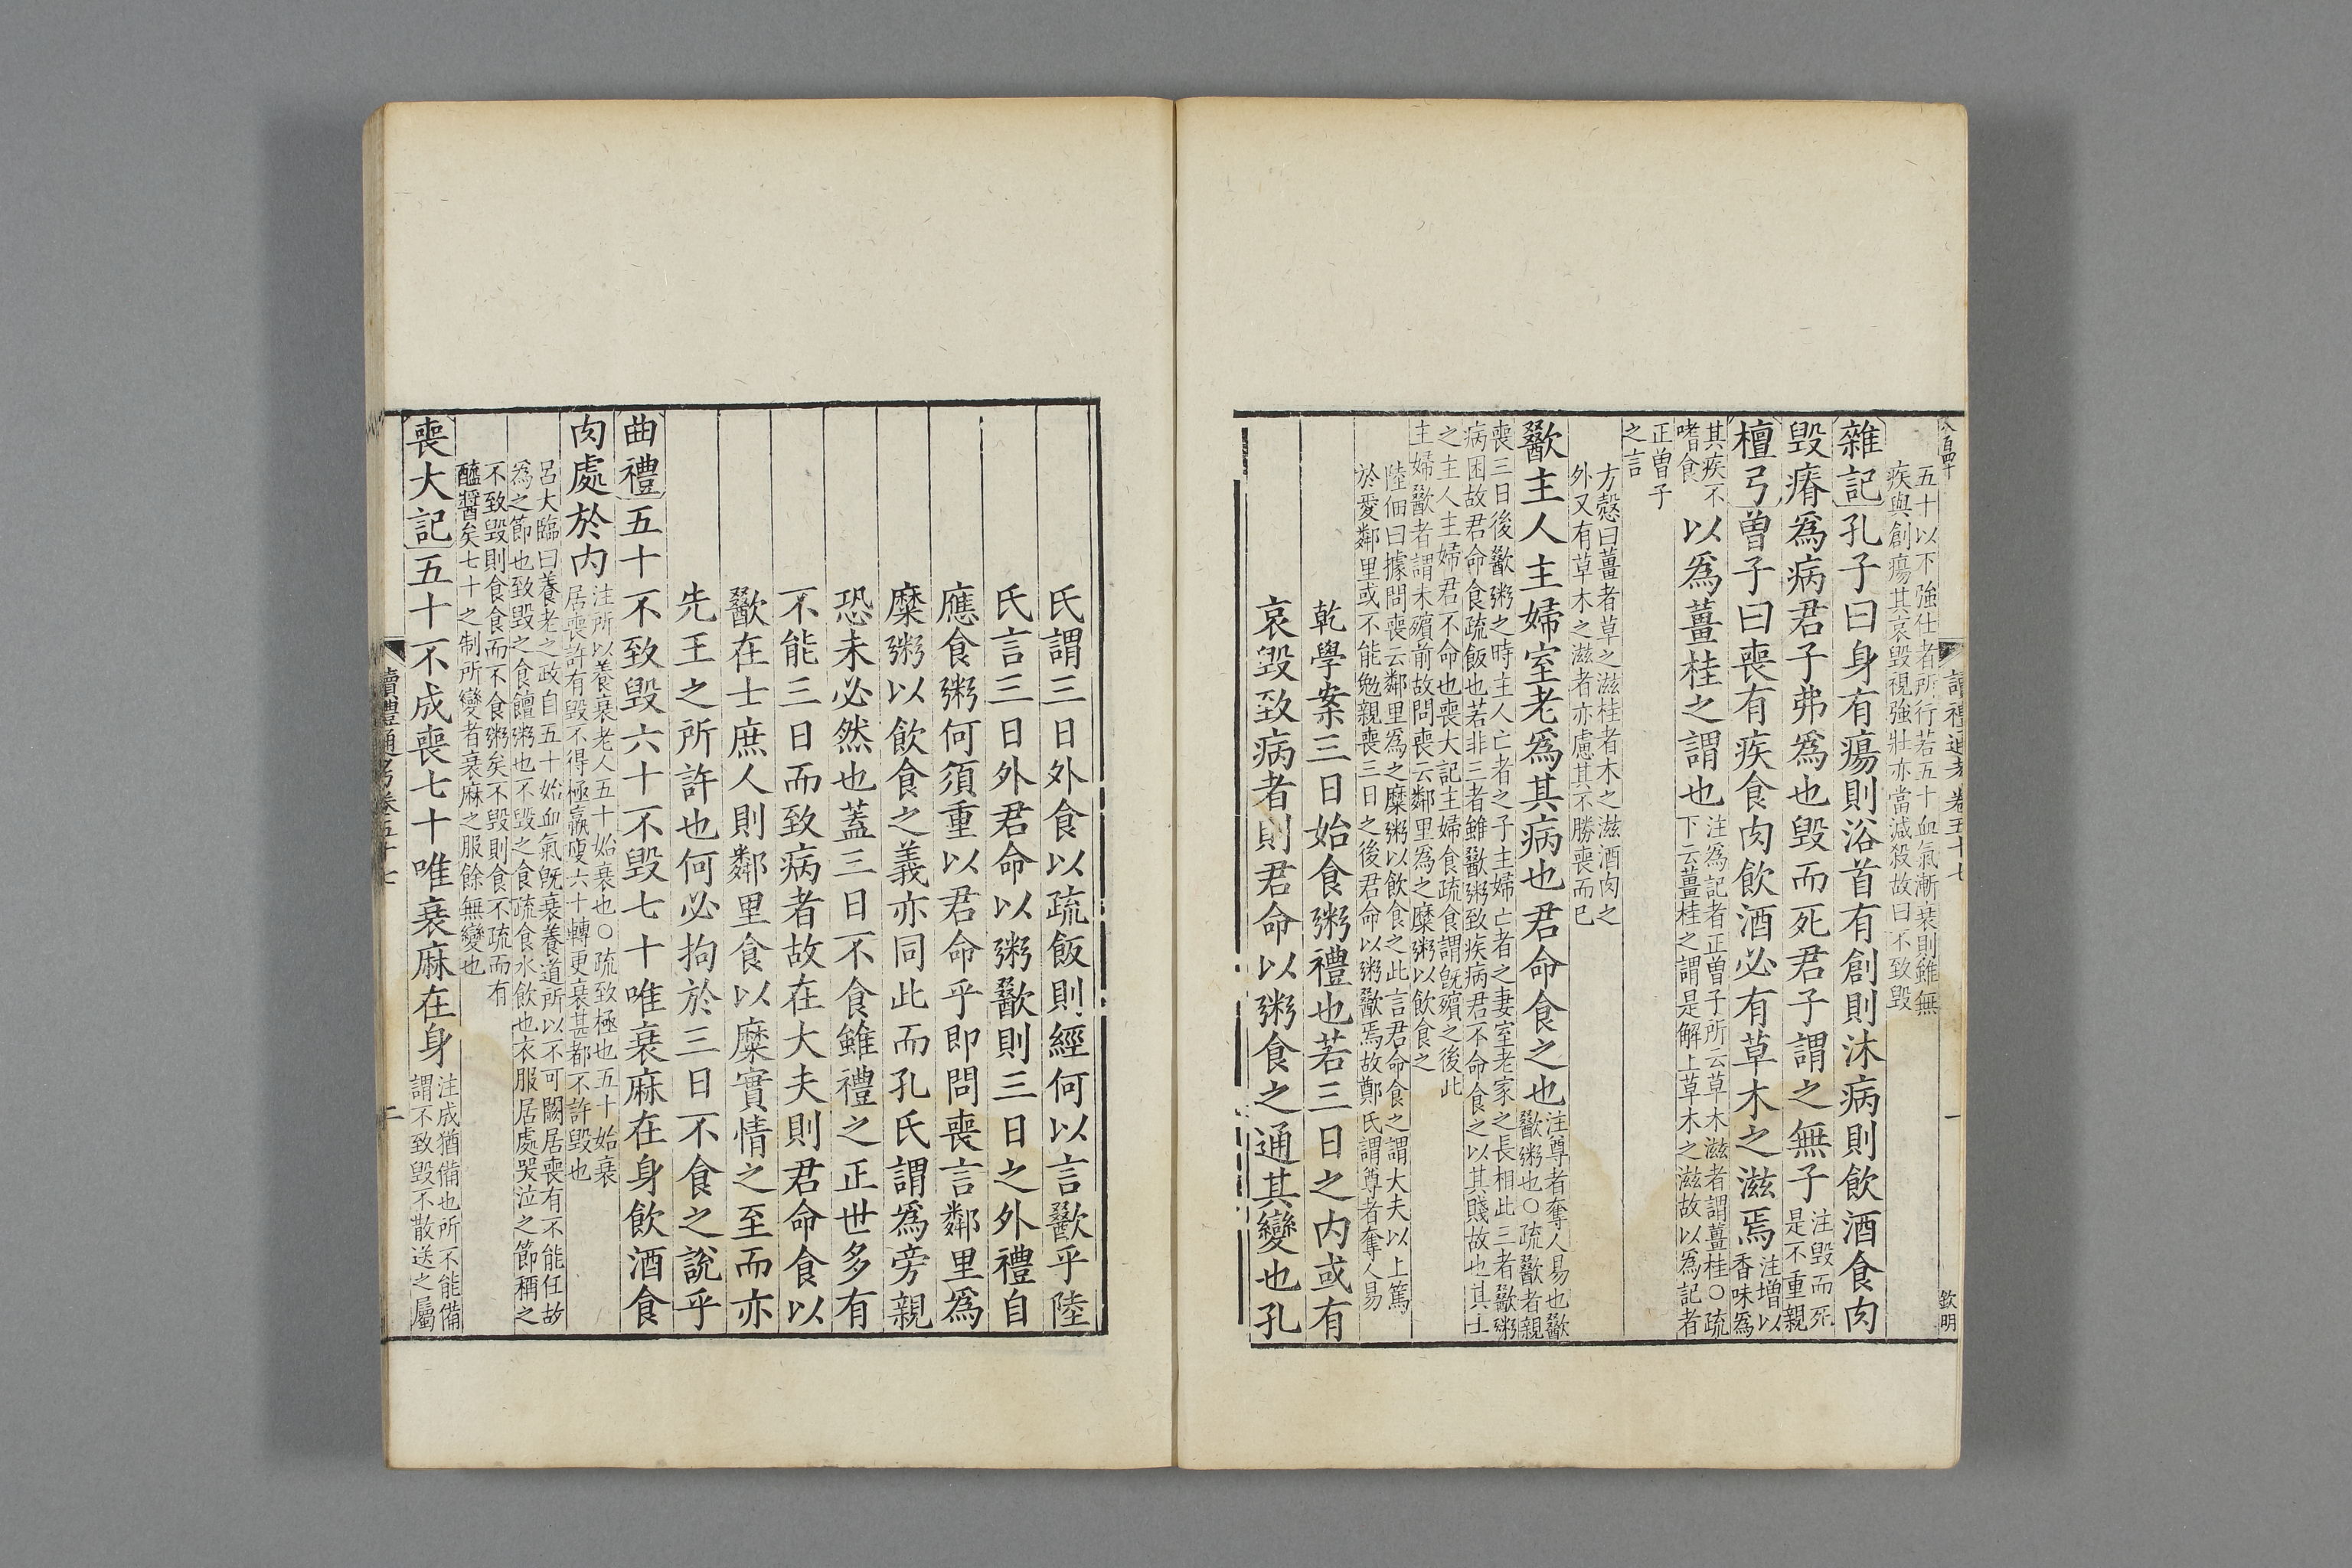 五十以不強仕者所行若五十血氣漸衰則雖無
疾與創瘍其哀毀視強壯亦當減殺故曰不致毀
雜記孔子曰身有瘍則浴首有創則沐病則飲酒食肉
毀瘠爲病君子弗爲也毀而死君子謂之無子
注毀而死
是不重親
檀弓曾子曰喪有疾食肉飲酒必有草木之滋焉
注增以
香味爲
其疾不
嗜食
以爲薑桂之謂也
注爲記者正曾子所云草木滋者謂薑桂○疏
下云薑桂之謂是解上草木之滋故以爲記者
正曾子
之言
方慤曰薑者草之滋桂者木之滋酒肉之
外又有草木之滋者亦慮其不勝喪而已
歠主人主婦室老爲其病也君命食之也
注尊者奪人易也歠
歠粥也○疏歠者親
喪三日後歠粥之時主人亡者之子主婦亡者之妻室老家之長相此三者歠粥
病困故君命食疏飯也若非三者雖歠粥致疾病君不命食之以其賤故也其士
之主人主婦君不命也喪大記主婦食疏食謂旣殯之後此
主婦歠者謂未殯前故問喪云鄰里爲之糜粥以飲食之
陸佃曰據問喪云鄰里爲之糜粥以飲食之此言君命食之謂大夫以上篤
於愛鄰里或不能勉親喪三日之後君命以粥歠焉故鄭氏謂尊者奪人易
乾學案三日始食粥禮也若三日之内或有
哀毀致病者則君命以粥食之通其變也孔
讀禮通考卷五十七
一
欽明
氏謂三日外食以疏飯則經何以言歠乎陸
氏言三日外君命以粥歠則三日之外禮自
應食粥何須重以君命乎即問喪言鄰里爲
糜粥以飲食之義亦同此而孔氏謂爲旁親
恐未必然也蓋三日不食雖禮之正世多有
不能三日而致病者故在大夫則君命食以
歠在士庶人則鄰里食以糜實情之至而亦
先王之所許也何必拘於三日不食之說乎
曲禮五十不致毀六十不毀七十唯衰麻在身飲酒食
肉處於内
注所以養衰老人五十始衰也○疏致極也五十始衰
居喪許有毀不得極羸瘦六十轉更衰甚都不許毀也
呂大臨曰養老之政自五十始血氣旣衰養道所以不可闕居喪有不能任故
爲之節也致毀之食饘粥也不毀之食疏食水飲也衣服居處哭泣之節稱之
不致毀則食食而不食粥矣不毀則食不疏而有
醯醬矣七十之制所變者衰麻之服餘無變也
喪大記五十不成喪七十唯衰麻在身
注成猶備也所不能備
謂不致毀不散送之屬
讀禮通考卷五十七
二